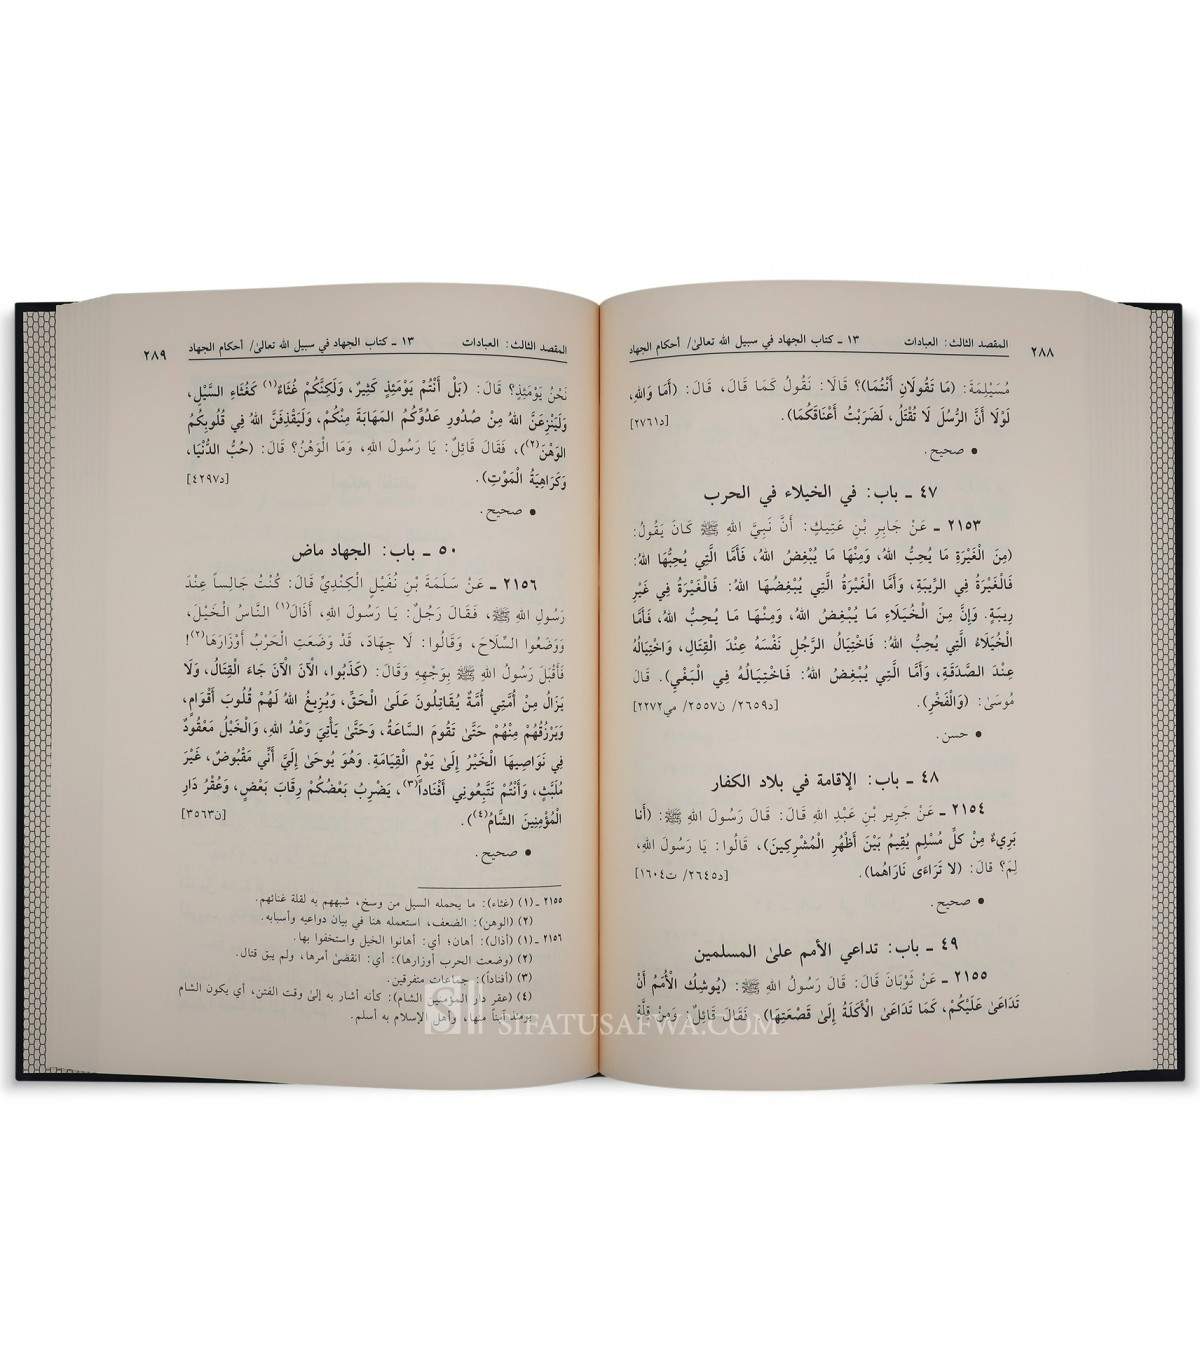 ٢٨٨ المقصد الثالث: العبادات ١٣ ـ كتاب الجهاد في سبيل الله تعالىٰ/ أحكام الجهاد
مُسَيْلِمَةَ: (مَا تَقُولَانِ أَنْتُمَا)؟ قَالَا: نَقُولُ كَمَا قَالَ، قَالَ: (أَمَا وَاللهِ،
لَوْلَا أَنَّ الرُّسُلَ لَا تُقْتَلُ، لَضَرَبْتُ أَعْنَاقَكُمَا). [د٢٧٦١]
• صحيح.
٤٧ ـ باب: في الخيلاء في الحرب
٢١٥٣ ـ عَنْ جَابِرِ بْنِ عَتِيكٍ: أَنَّ نَبِيَّ اللهِ ﷺ كَانَ يَقُولُ:
(مِنَ الْغَيْرَةِ مَا يُحِبُّ اللهُ، وَمِنْهَا مَا يُبْغِضُ اللهُ، فَأَمَّا الَّتِي يُحِبُّهَا اللهُ:
فَالْغَيْرَةُ فِي الرِّيبَةِ، وَأَمَّا الْغَيْرَةُ الَّتِي يُبْغِضُهَا اللهُ: فَالْغَيْرَةُ فِي غَيْرِ
رِيبَةٍ. وَإِنَّ مِنَ الْخُيَلَاءِ مَا يُبْغِضُ اللهُ، وَمِنْهَا مَا يُحِبُّ اللهُ، فَأَمَّا
الْخُيَلَاءُ الَّتِي يُحِبُّ اللهُ: فَاخْتِيَالُ الرَّجُلِ نَفْسَهُ عِنْدَ الْقِتَالِ، وَاخْتِيَالُهُ
عِنْدَ الصَّدَقَةِ، وَأَمَّا الَّتِي يُبْغِضُ اللهُ: فَاخْتِيَالُهُ فِي الْبَغْيِ). قَالَ
مُوسَىٰ: (وَالْفَخْرِ). [د٢٦٥٩/ ن٢٥٥٧/ مي٢٢٧٢]
• حسن.
٤٨ ـ باب: الإقامة في بلاد الكفار
٢١٥٤ ـ عَنْ جَرِيرِ بْنِ عَبْدِ اللهِ قَالَ: قَالَ رَسُولُ اللهِ ﷺ: (أَنَا
بَرِيءٌ مِنْ كلِّ مُسْلِمٍ يُقِيمُ بَيْنَ أَظْهُرِ الْمُشْرِكِينَ)، قَالُوا: يَا رَسُولَ اللهِ،
لِمَ؟ قَالَ: (لا تَرَاءَى نَارَاهُما). [د٢٦٤٥/ ت١٦٠٤]
• صحيح.
٤٩ ـ باب: تداعي الأمم علىٰ المسلمين
٢١٥٥ ـ عَنْ ثَوْبَانَ قَالَ: قَالَ رَسُولُ اللهِ ﷺ: (يُوشِكُ الْأُمَمُ أَنْ
تَدَاعَىٰ عَلَيْكُمْ، كَمَا تَدَاعَىٰ الْأَكَلَةُ إِلَىٰ قَصْعَتِهَا). فَقَالَ قَائِلٌ: وَمِنْ قِلَّةٍ
المقصد الثالث: العبادات ١٣ ـ كتاب الجهاد في سبيل الله تعالىٰ/ أحكام الجهاد ٢٨٩
نَحْنُ يَوْمَئِذٍ؟ قَالَ: (بَلْ أَنْتُمْ يَوْمَئِذٍ كَثِيرٌ، وَلَكِنَّكُمْ غُثَاءٌ(١) كَغُثَاءِ السَّيْلِ،
وَلَيَنْزِعَنَّ اللهُ مِنْ صُدُورِ عَدُوِّكُمُ المَهَابَةَ مِنْكُمْ، وَلَيَقْذِفَنَّ اللهُ فِي قُلُوبِكُمُ
الوَهْنَ(٢))، فَقَالَ قَائِلٌ: يَا رَسُولَ اللهِ، وَمَا الْوَهْنُ؟ قَالَ: (حُبُّ الدُّنْيَا،
وَكَرَاهِيَةُ الْمَوْتِ). [د٤٢٩٧]
• صحيح.
٥٠ ـ باب: الجهاد ماض
٢١٥٦ ـ عَنْ سَلَمَةَ بْنِ نُفَيْلٍ الْكِنْدِيِّ قَالَ: كُنْتُ جَالِساً عِنْدَ
رَسُولِ اللهِ ﷺ، فَقَالَ رَجُلٌ: يَا رَسُولَ اللهِ، أَذَالَ(١) النَّاسُ الْخَيْلَ،
وَوَضَعُوا السِّلَاحَ، وَقَالُوا: لَا جِهَادَ، قَدْ وَضَعَتِ الْحَرْبُ أَوْزَارَهَا(٢)!
فَأَقْبَلَ رَسُولُ اللهِ ﷺ بِوَجْهِهِ وَقَالَ: (كَذَبُوا، الْآنَ الْآنَ جَاءَ الْقِتَالُ، وَلَا
يَزَالُ مِنْ أُمَّتِي أُمَّةٌ يُقَاتِلُونَ عَلَىٰ الْحَقِّ، وَيُزِيغُ اللهُ لَهُمْ قُلُوبَ أَقْوَامٍ،
وَيَرْزُقُهُمْ مِنْهُمْ حَتَّىٰ تَقُومَ السَّاعَةُ، وَحَتَّىٰ يَأْتِيَ وَعْدُ اللهِ، وَالْخَيْلُ مَعْقُودٌ
فِي نَوَاصِيهَا الْخَيْرُ إِلَىٰ يَوْمِ الْقِيَامَةِ. وَهُوَ يُوحَىٰ إِلَيَّ أَنِّي مَقْبُوضٌ، غَيْرَ
مُلَبَّثٍ، وَأَنْتُمْ تَتَّبِعُونِي أَفْنَاداً(٣)، يَضْرِبُ بَعْضُكُمْ رِقَابَ بَعْضٍ، وَعُقْرُ دَارِ
الْمُؤْمِنِينَ الشَّامُ(٤)). [ن٣٥٦٣]
• صحيح.
٢١٥٥ ـ (١) (غثاء): ما يحمله السيل من وسخ، شبههم به لقلة غنائهم.
(٢) (الوهن): الضعف، استعمله هنا في بيان دواعيه وأسبابه.
٢١٥٦ ـ (١) (أذال): أهان؛ أي: أهانوا الخيل واستخفوا بها.
(٢) (وضعت الحرب أوزارها): أي: انقضىٰ أمرها، ولم يبق قتال.
(٣) (أفناداً): جماعات متفرقين.
(٤) (عقر دار المؤمنين الشام): كأنه أشار به إلىٰ وقت الفتن، أي يكون الشام
يومئذ آمناً منها، وأهل الإسلام به أسلم.
SIFATUSAFWA.COM